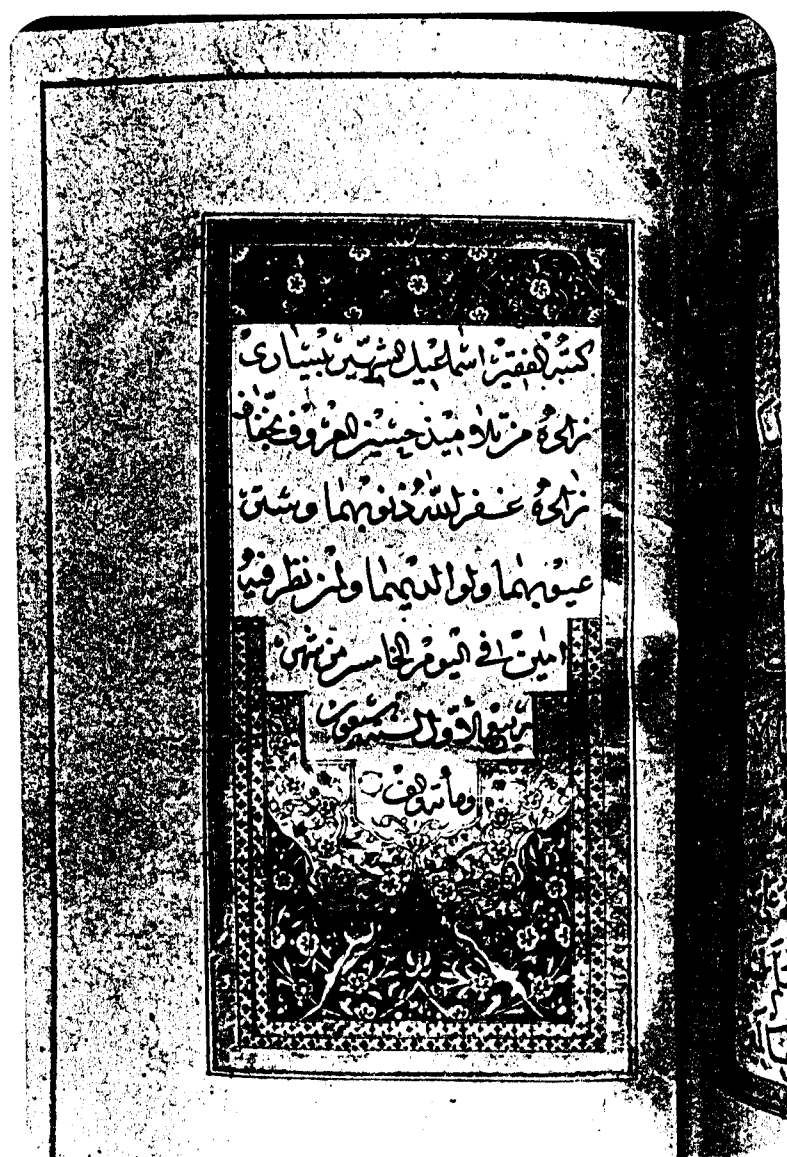 كتبه الفقير اسماعيل الشهير بيساري
زاده من تلاميذ حسين المعروف بخفاف
زاده غفر الله ذنوبهما وستر
عيوبهما ولوالديهما ولمن نظر فيه
امين في اليوم الخامس من شهر
ربيع الاول لسنة تسعون
ومأته والف